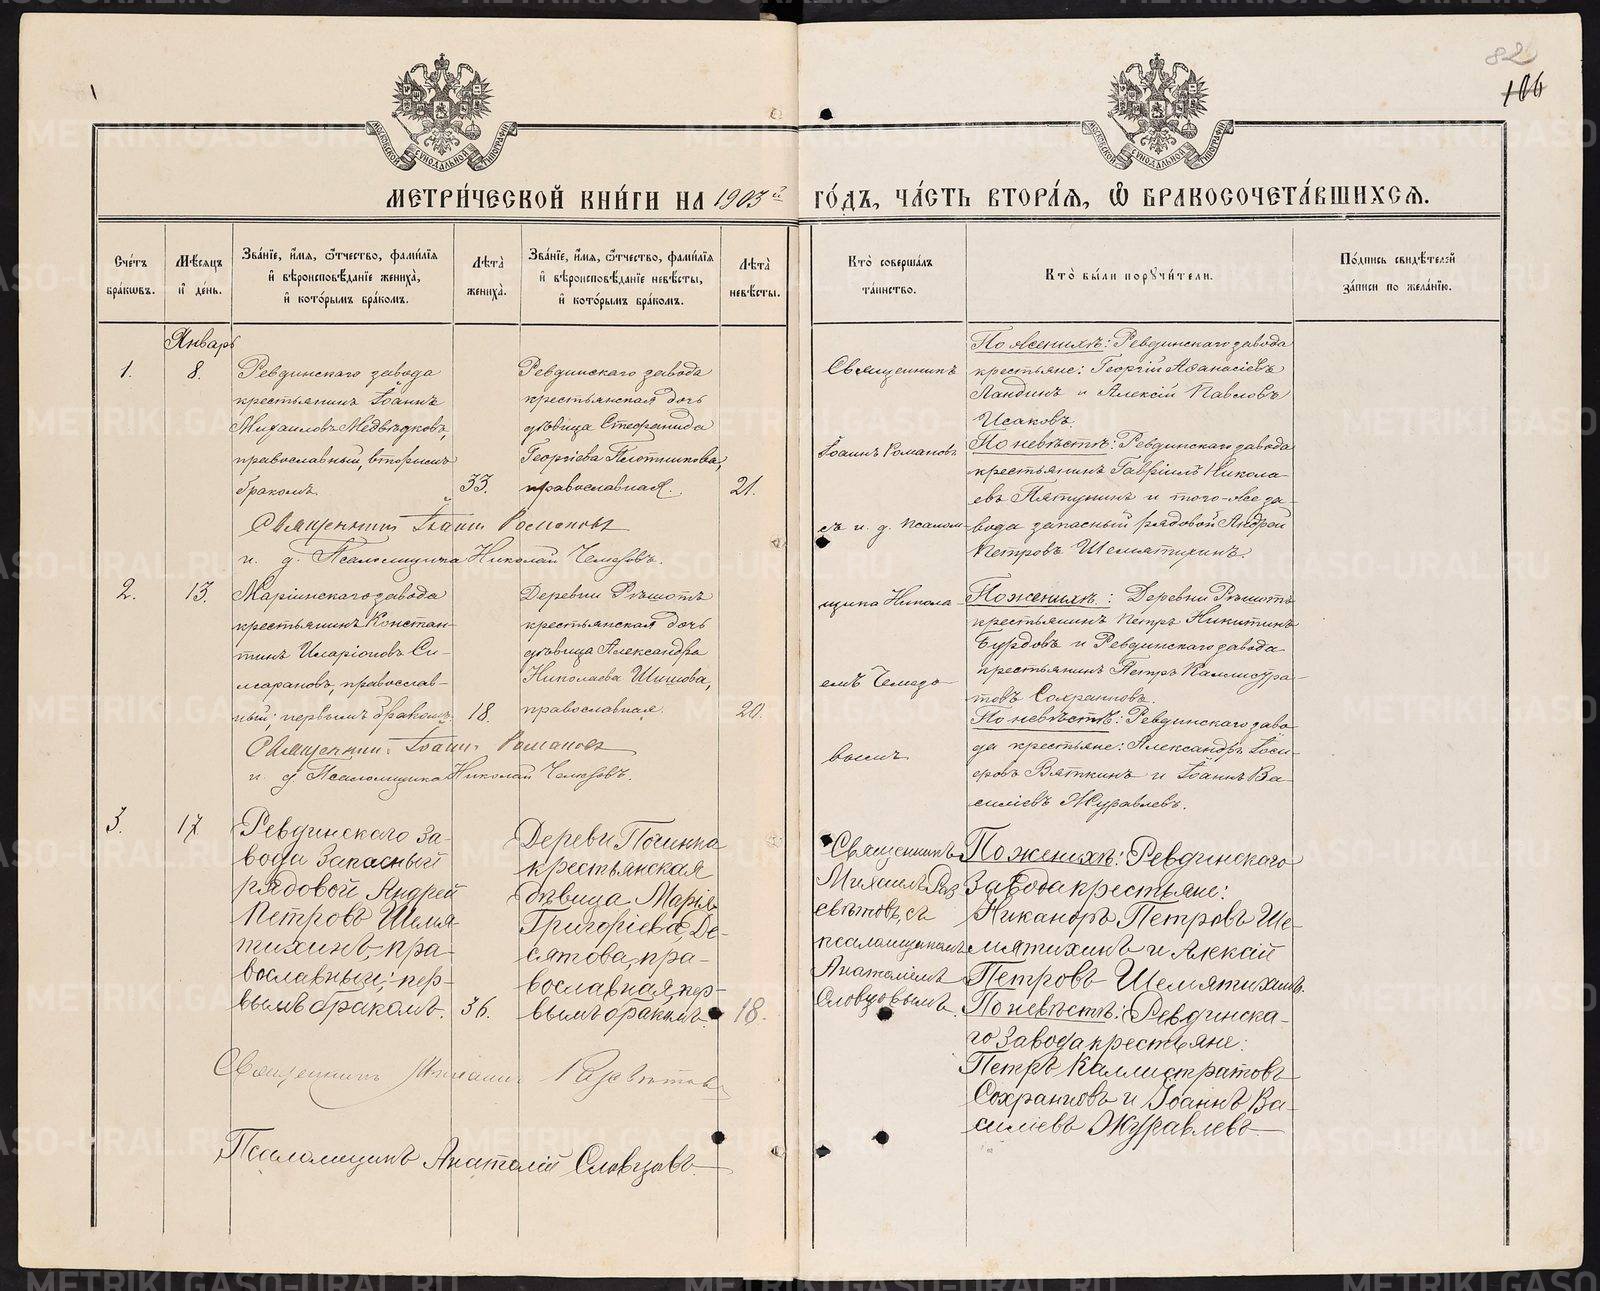 82
106
МОСКОВСКОЙ СУНОДАЛЬНОЙ ТИПОГРАФІИ
МОСКОВСКОЙ СУНОДАЛЬНОЙ ТИПОГРАФІИ
МЕТРИ́ЧЕСКОЙ КНИ́ГИ НА 1903й ГО́ДЪ, ЧА́СТЬ ВТОРА́Я, Ѿ БРАКОСОЧЕТА́ВШИХСЯ.
Сче́тъ бра́кѡвъ.
Мѣ́сяцъ и҆ де́нь.
Зва́нїе, и҆́мя, ѻ҆́тчество, фами́лїя и҆ вѣроисповѣ́данїе жениха̀, и҆ кото́рымъ бра́комъ.
Лѣ́та̀ жениха̀.
Зва́нїе, и҆́мя, ѻ҆́тчество, фами́лїя и҆ вѣроисповѣ́данїе невѣ́сты, и҆ кото́рымъ бра́комъ.
Лѣ́та̀ невѣ́сты.
Кто̀ соверша́лъ та́инство.
Кто̀ бы́ли порꙋчи́тели.
По́дпись свидѣ́телей за́писи по жела́нїю.
Январь
1.
8.
Ревдинскаго завода
крестьянинъ Іоаннъ
Михаиловъ Медвѣдковъ,
православный, вторымъ
бракомъ.
33.
Ревдинскаго завода
крестьянская дочь
дѣвица Стефанида
Георгіева Плотникова,
православная.
21.
Священникъ Іоаннъ Романовъ
и. д. Псаломщика Николай Чемезовъ.
Священникъ
Іоаннъ Романовъ
съ и. д. псалом-
щика Никола-
емъ Чемезо-
вымъ
По женихѣ: Ревдинскаго завода
крестьяне: Георгій Аѳанасіевъ
Ландинъ и Алексій Павловъ
Исаковъ.
По невѣстѣ: Ревдинскаго завода
крестьянинъ Гавріилъ Никола-
евъ Пятунинъ и того-же за-
вода запасный рядовой Андрей
Петровъ Шемятихинъ.
2.
13.
Маріинскаго завода
крестьянинъ Констан-
тинъ Иларіоновъ Си-
марановъ, православ-
ный; первымъ бракомъ.
18.
Деревни Рѣшотъ
крестьянская дочь
дѣвица Александра
Николаева Шишова,
православная.
20.
Священникъ Іоаннъ Романовъ
и. д Псаломщика Николай Чемезовъ.
По женихѣ: Деревни Рѣшотъ
крестьянинъ Петръ Никитинъ
Бурдовъ и Ревдинскаго завода
крестьянинъ Петръ Каллистра-
товъ Сохранновъ.
По невѣстѣ: Ревдинскаго заво
да крестьяне: Александръ Іоси-
фовъ Вяткинъ и Іоаннъ Ва-
силіевъ Журавлевъ.
3.
17
Ревдинскаго за-
вода запасный
рядовой Андрей
Петровъ Шемя-
тихинъ, пра-
вославный; пер-
вымъ бракомъ.
36.
Деревн Починка
крестьянская
дѣвица Марія
Григоріева, Де-
сятова, пра-
вославная, пер-
вымъ бракомъ.
18.
Священникъ
Михаилъ Раз
свѣтовъ, съ
псаломщикомъ
Анатоліемъ
Словцовымъ.
По женихѣ: Ревдинскаго
завода крестьяне:
Никаноръ Петровъ Ше-
мятихинъ и Алексій
Петровъ Шемятихинъ.
По невѣстѣ: Ревдинска-
го завода крестьяне:
Петръ Каллистратовъ
Сохранновъ и Іоаннъ Ва-
силіевъ Журавлевъ
Священникъ Михаилъ Разсвѣтовъ
Псаломщикъ Анатолій Словцовъ
METRIKI.GASO-URAL.RU